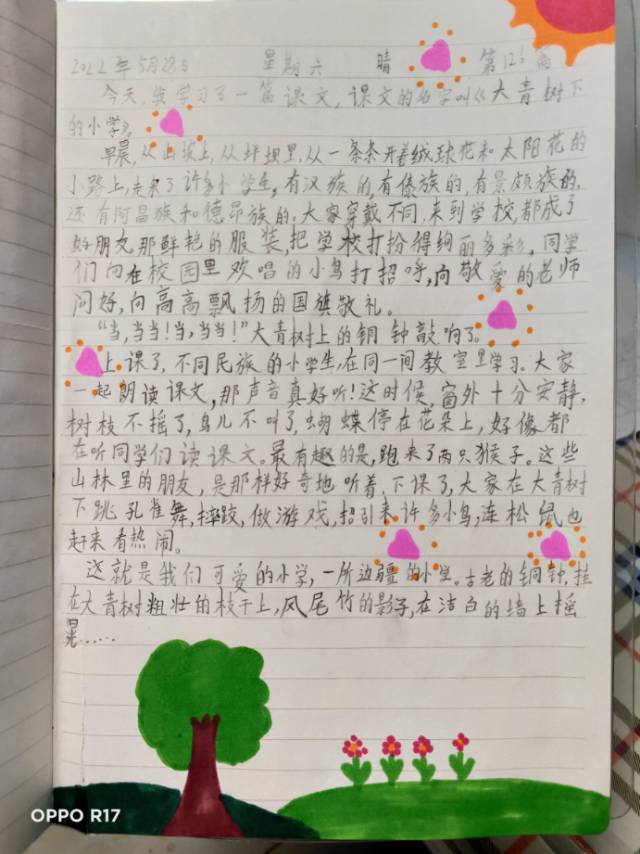 2022年5月28日 星期六 晴 第126篇
今天,我学习了一篇课文,课文的名字叫《大青树下
的小学》。
早晨,从山坡上,从坪坝里,从一条条开着绒球花和太阳花的
小路上,走来了许多小学生,有汉族的,有傣族的,有景颇族的,
还有阿昌族和德昂族的。大家穿戴不同,来到学校,都成了
好朋友。那鲜艳的服装,把学校打扮得绚丽多彩。同学
们向在校园里欢唱的小鸟打招呼,向敬爱的老师
问好,向高高飘扬的国旗敬礼。
“当,当当!当,当当!”大青树上的铜钟敲响了。
上课了,不同民族的小学生,在同一间教室里学习。大家
一起朗读课文,那声音真好听!这时候,窗外十分安静,
树枝不摇了,鸟儿不叫了,蝴蝶停在花朵上,好像都
在听同学们读课文。最有趣的是,跑来了两只猴子。这些
山林里的朋友,是那样好奇地听着。下课了,大家在大青树
下跳孔雀舞,摔跤,做游戏,招引来许多小鸟,连松鼠也
赶来看热闹。
这就是我们可爱的小学,一所边疆的小学。古老的铜钟,挂
在大青树粗壮的枝干上,凤尾竹的影子,在洁白的墙上摇
晃……
OPPO R17